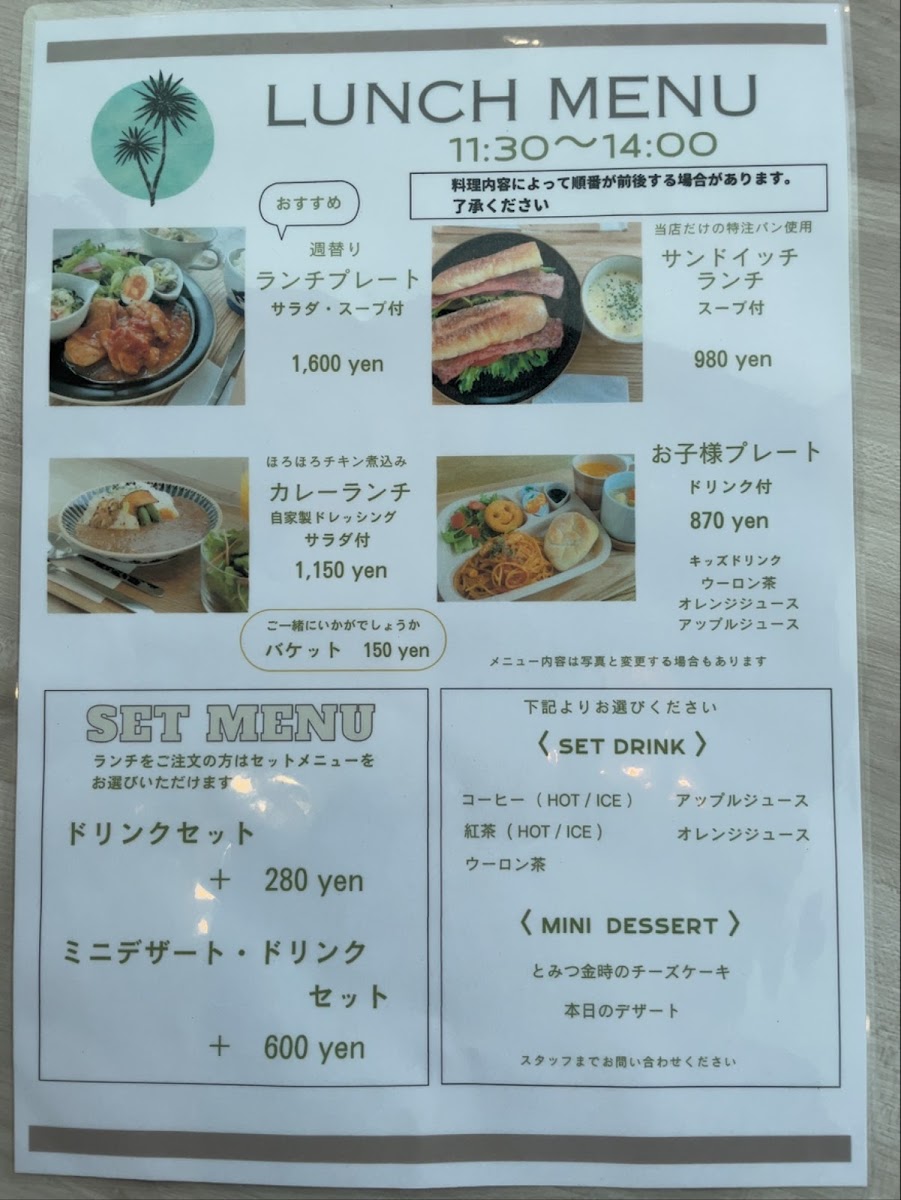 LUNCH MENU
11:30〜14:00
料理内容によって順番が前後する場合があります。
了承ください
おすすめ
週替り
ランチプレート
サラダ・スープ付
1,600 yen
当店だけの特注パン使用
サンドイッチ
ランチ
スープ付
980 yen
ほろほろチキン煮込み
カレーランチ
自家製ドレッシング
サラダ付
1,150 yen
ご一緒にいかがでしょうか
バケット 150 yen
お子様プレート
ドリンク付
870 yen
キッズドリンク
ウーロン茶
オレンジジュース
アップルジュース
メニュー内容は写真と変更する場合もあります
SET MENU
ランチをご注文の方はセットメニューを
お選びいただけます
ドリンクセット
＋ 280 yen
ミニデザート・ドリンク
セット
＋ 600 yen
下記よりお選びください
〈 SET DRINK 〉
コーヒー （ HOT / ICE ） アップルジュース
紅茶 （ HOT / ICE ） オレンジジュース
ウーロン茶
〈 MINI DESSERT 〉
とみつ金時のチーズケーキ
本日のデザート
スタッフまでお問い合わせください